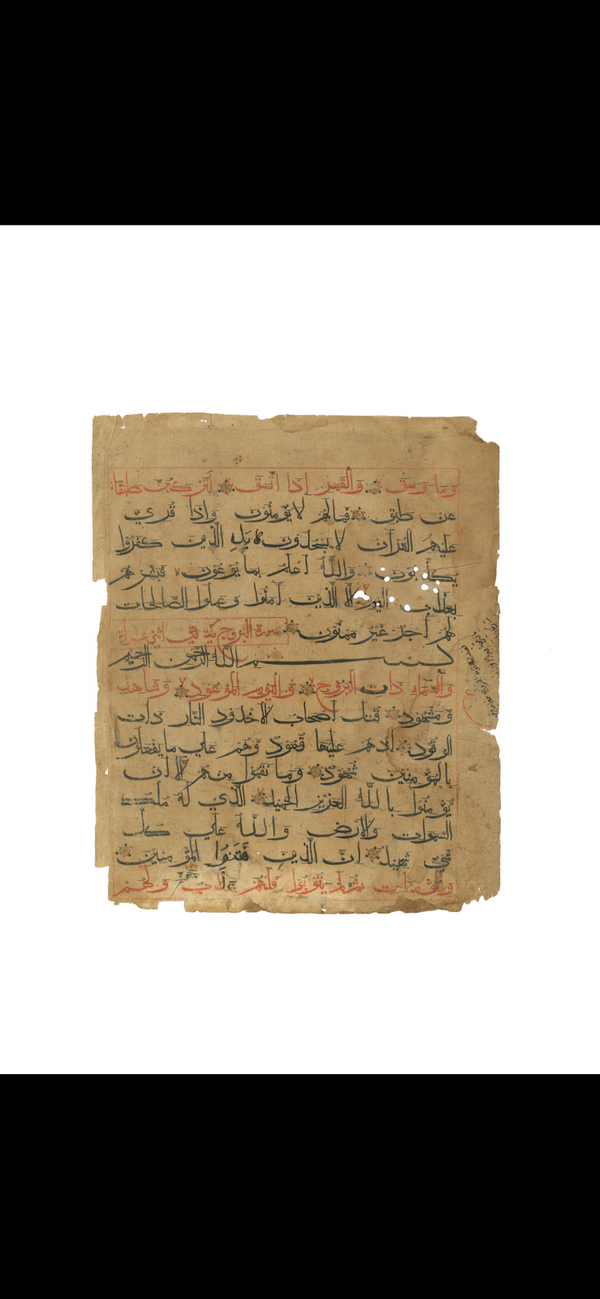 وما وسق والقمر إذا اتسق لتركبن طبقا
عن طبق فما لهم لا يؤمنون وإذا قرئ
عليهم القرآن لا يسجدون بل الذين كفروا
يكذبون والله أعلم بما يوعون فبشرهم
بعذاب اليم إلا الذين آمنوا وعملوا الصالحات
لهم أجر غير ممنون سورة البروج مكية وهي اثنتي
بسم الله الرحمن الرحيم
والسماء ذات البروج واليوم الموعود وشاهد
ومشهود قتل أصحاب الأخدود النار ذات
الوقود إذ هم عليها قعود وهم على ما يفعلون
بالمؤمنين شهود وما نقموا منهم إلا أن
يؤمنوا بالله العزيز الحميد الذي له ملك
السموات والأرض والله على كل
شيء شهيد إن الذين فتنوا المؤمنين
والمؤمنات ثم لم يتوبوا فلهم عذاب ولهم